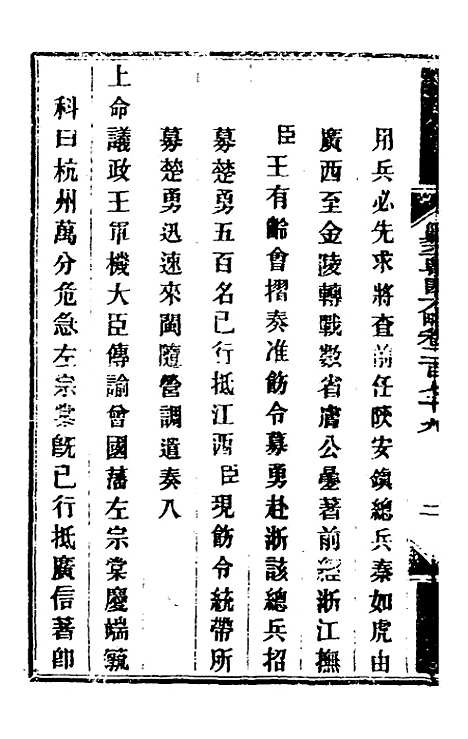 用兵必先求將查前任陝安鎮總兵秦如虎由
廣西至金陵轉戰數省膚公疊著前經浙江撫
臣王有齡會摺奏准飭令募勇赴浙該總兵招
募楚勇五百名已行抵江西臣現飭令統帶所
募楚勇迅速來閩隨營調遣奏入
上命議政王軍機大臣傳諭曾國藩左宗棠慶端毓
科曰杭州萬分危急左宗棠既已行抵廣信著即
方略卷二百七十九
二